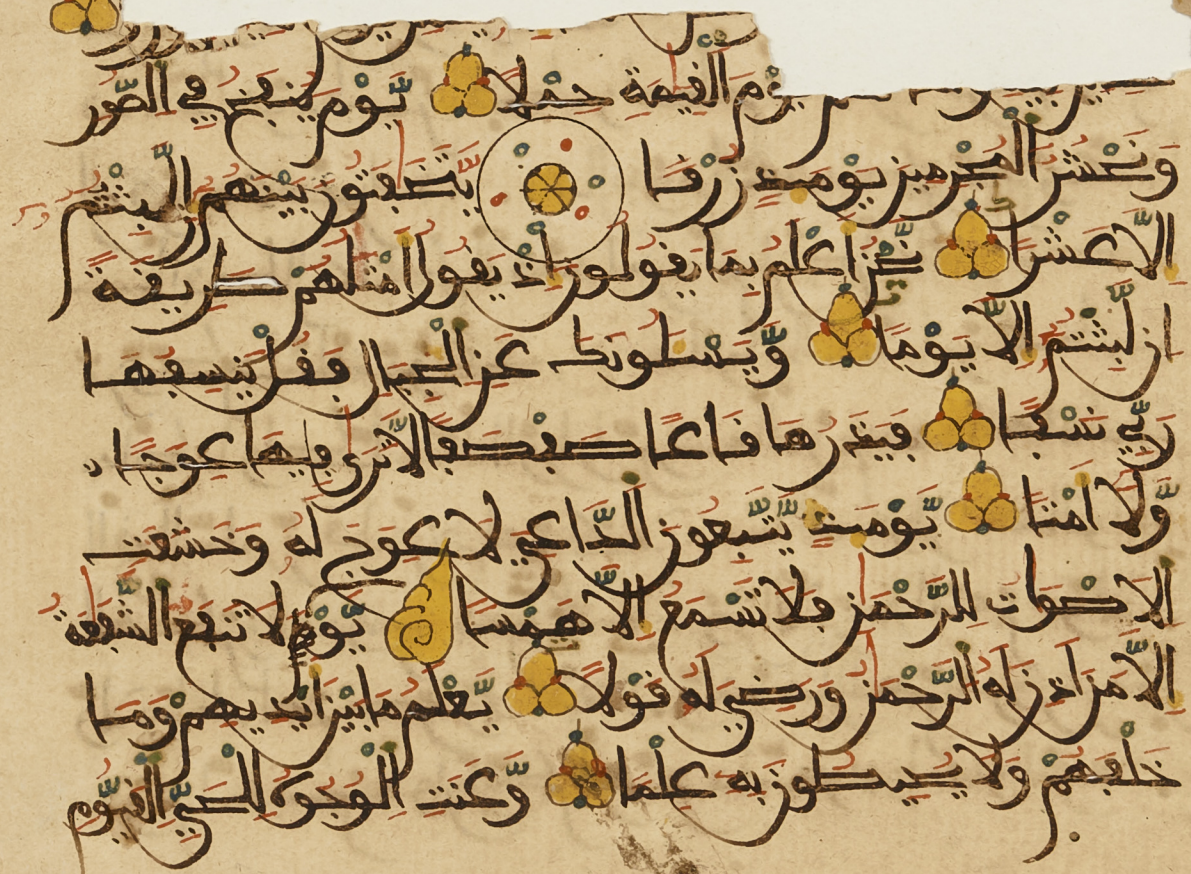 يوم القيمة حملا يوم ينفخ في الصور
ونحشر المجرمين يومئذ زرقا يتخفتون بينهم ان لبثتم
الا عشرا نحن اعلم بما يقولون اذ يقول امثلهم طريقة
ان لبثتم الا يوما ويسلونك عن الجبال فقل ينسفها
ربي نسفا فيذرها قاعا صفصفا لا ترى فيها عوجا
ولا امتا يومئذ يتبعون الداعي لا عوج له وخشعت
الاصوات للرحمن فلا تسمع الا همسا يومئذ لا تنفع الشفعة
الا من اذن له الرحمن ورضي له قولا يعلم ما بين ايديهم وما
خلفهم ولا يحيطون به علما وعنت الوجوه للحي القيوم